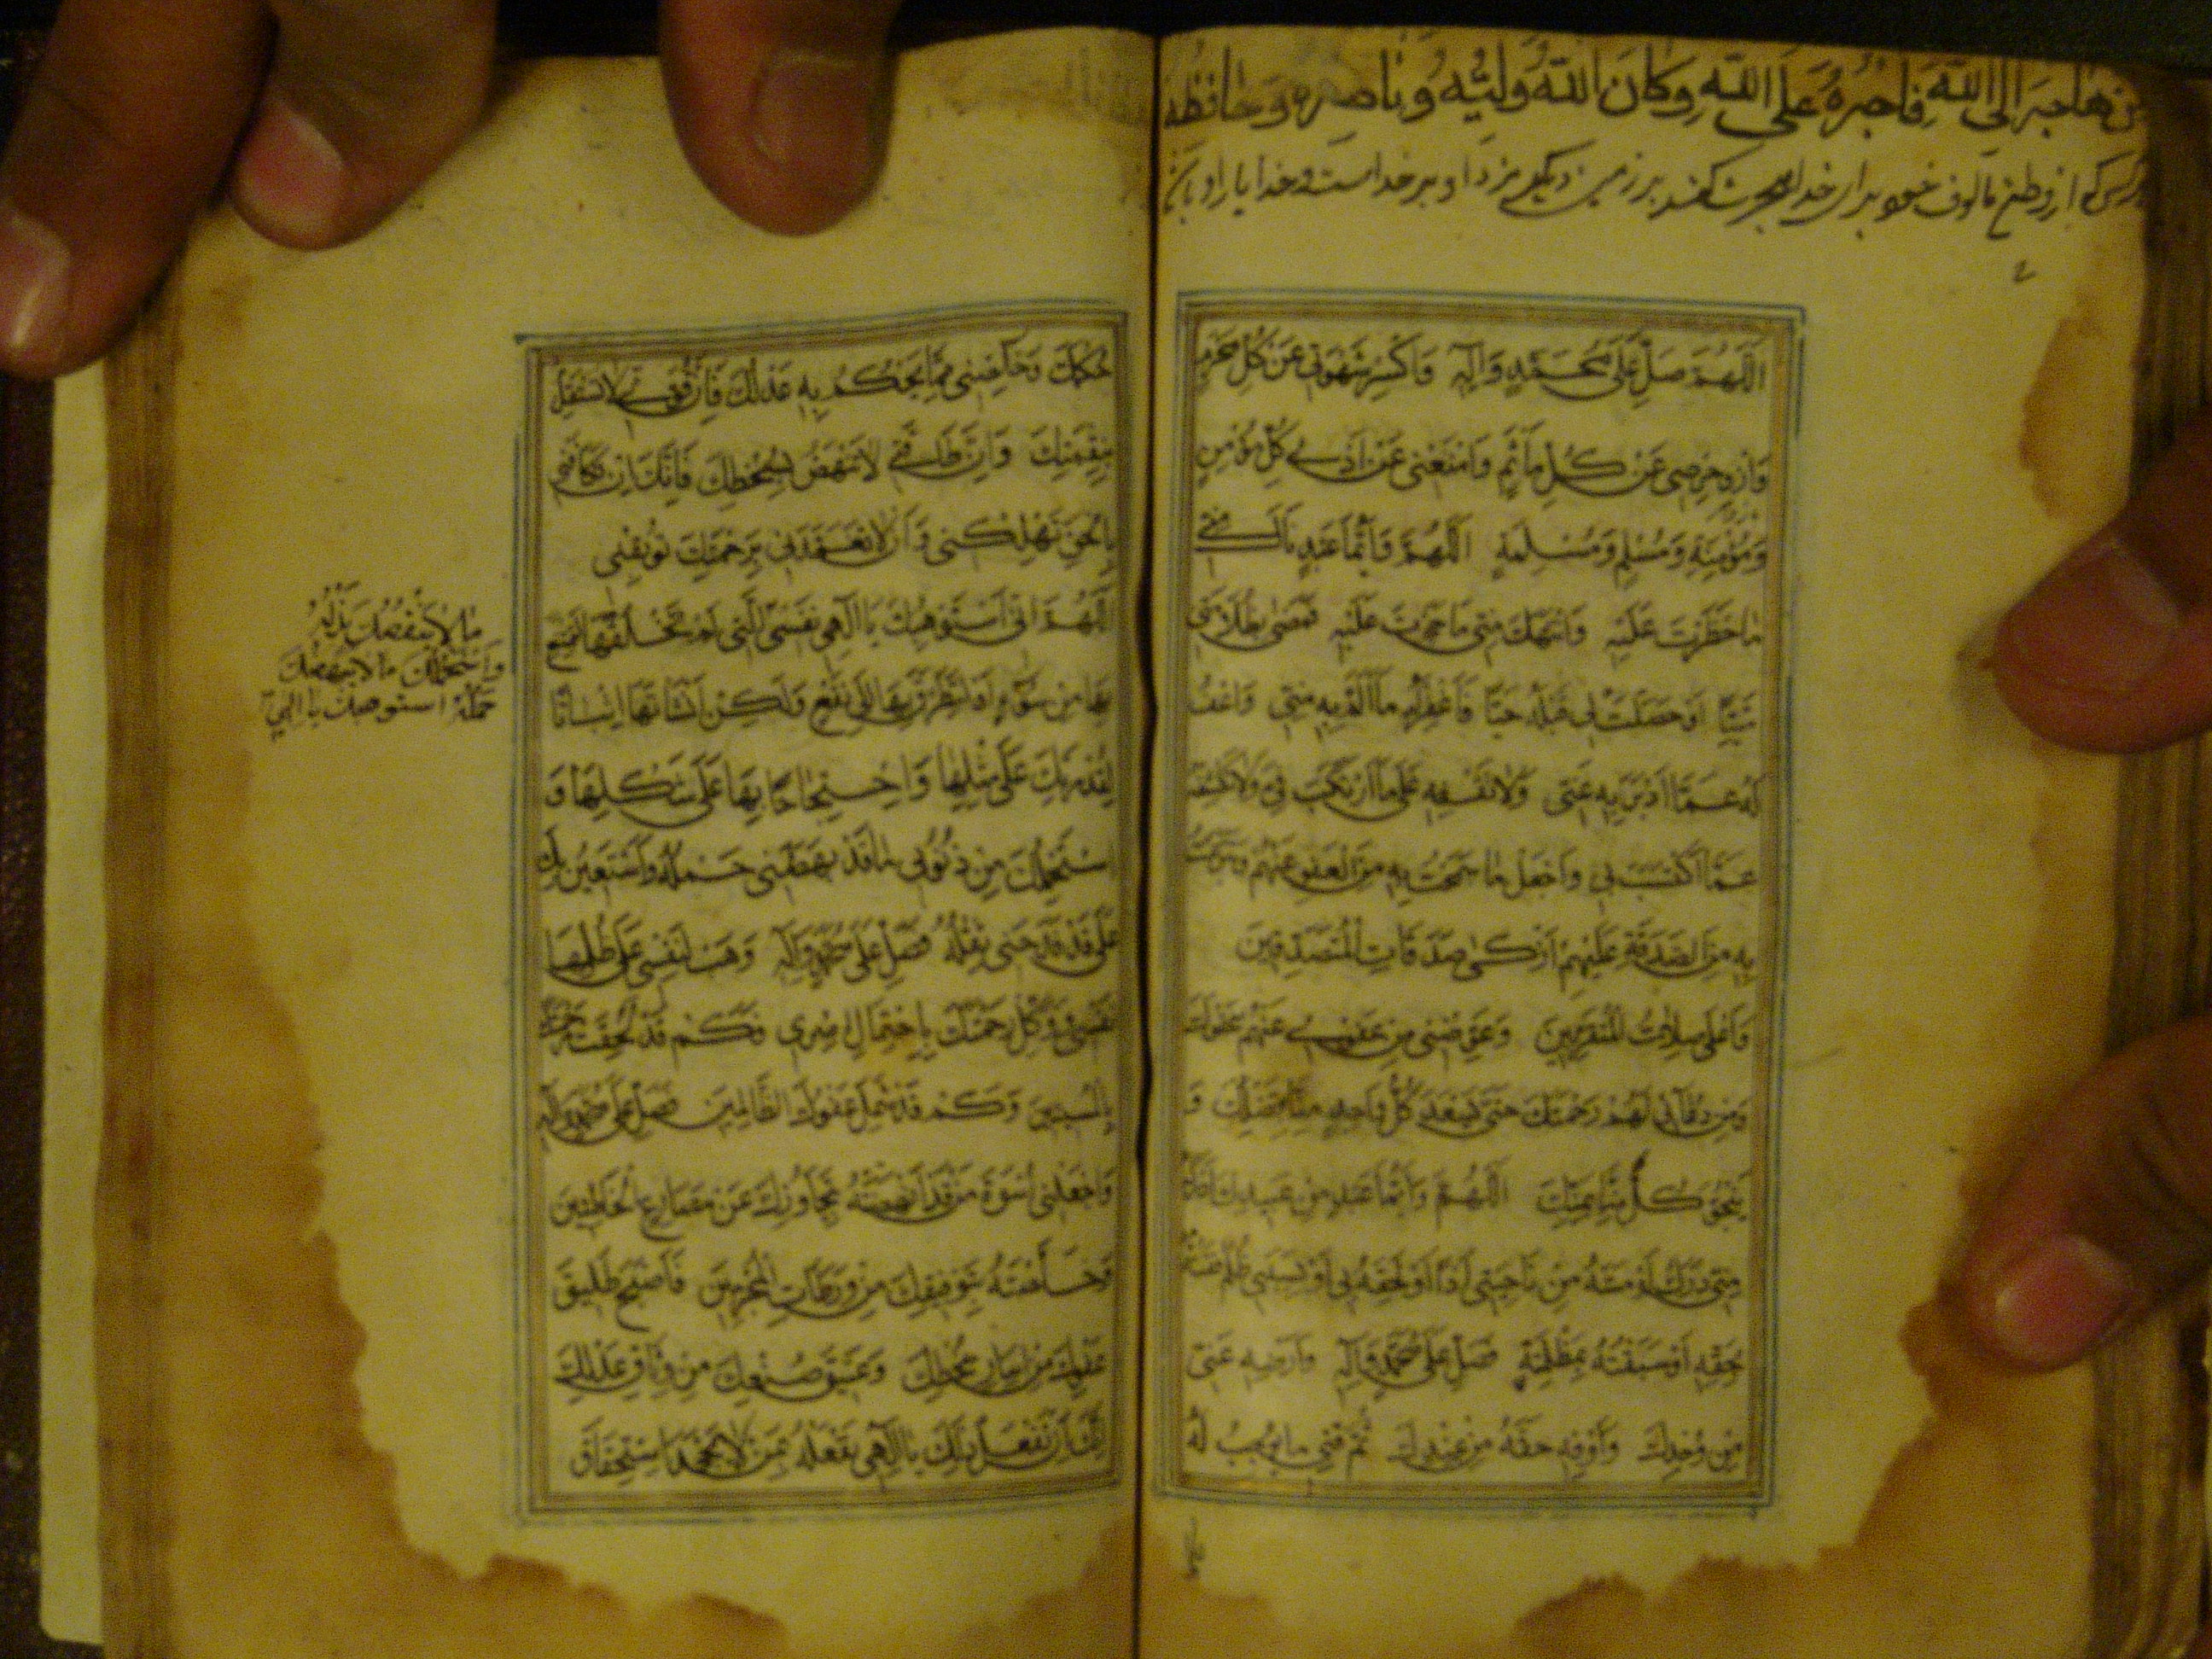 من هاجر الى الله فاجره على الله وكان الله وليه وناصره وحافظه
هر کس که از وطن مالوف خود برای خدا هجرت کند بر زمین دیگر مزد او بر خداست و خدا یار او
اَللّهُمَّ صَلِّ عَلى مُحَمَّدٍ وَالِهِ وَاكْسِرْ شَهْوَتى عَنْ كُلِّ مَحْرَمٍ
وَازْوِ حِرْصى عَنْ كُلِّ مَأْثَمٍ وَامْنَعْنى عَنْ اَذى كُلِّ مُؤْمِنٍ
وَمُؤْمِنَةٍ وَمُسْلِمٍ وَمُسْلِمَةٍ اَللّهُمَّ وَاَيُّما عَبْدٍ نالَ مِنّى
ما حَظَرْتَ عَلَيْهِ وَانْتَهَكَ مِنّى ما حَجَرْتَ عَلَيْهِ فَمَضى بِظُلامَتى
مَيِّتًا اَوْ حَصَلَتْ لى قِبَلَهُ حَيًّا فَاغْفِرْ لَهُ ما اَلَمَّ بِهِ مِنّى وَاعْفُ
لَهُ عَمّا اَدْبَرَ بِهِ عَنّى وَلا تَقِفْهُ عَلى ما ارْتَكَبَ فِىَّ وَلا تَكْشِفْهُ
عَمَّا اكْتَسَبَ بى وَاجْعَلْ ما سَمَحْتُ بِهِ مِنَ الْعَفْوِ عَنْهُمْ وَتَبَرَّعْتُ
بِهِ مِنَ الصَّدَقَةِ عَلَيْهِمْ اَزْكى صَدَقاتِ الْمُتَصَدِّقينَ
وَاَعْلى صِلاتِ الْمُتَقَرِّبينَ وَعَوِّضْنى مِنْ عَفْوى عَنْهُمْ عَفْوَكَ
وَمِنْ دُعائى لَهُمْ رَحْمَتَكَ حَتّى يَسْعَدَ كُلُّ واحِدٍ مِنّا بِفَضْلِكَ وَ
يَنْجُوَ كُلٌّ مِنّا بِمَنِّكَ اَللّهُمَّ وَاَيُّما عَبْدٍ مِنْ عَبيدِكَ اَدْرَكَهُ
مِنّى دَرَكٌ اَوْ مَسَّهُ مِنْ ناحِيَتى اَذًى اَوْ لَحِقَهُ بى اَوْ بِسَبَبى ظُلْمٌ فَفُتُّهُ
بِحَقِّهِ اَوْ سَبَقْتُهُ بِمَظْلِمَتِهِ فَصَلِّ عَلى مُحَمَّدٍ وَالِهِ وَاَرْضِهِ عَنّى
مِنْ وُجْدِكَ وَاَوْفِهِ حَقَّهُ مِنْ عِنْدِكَ ثُمَّ قِنى ما يُوجِبُ لَهُ
حُكْمُكَ وَخَلِّصْنى مِمّا يَحْكُمُ بِهِ عَدْلُكَ فَاِنَّ قُوَّتى لا تَسْتَقِلُّ
بِنِقْمَتِكَ وَاِنَّ طاقَتى لا تَنْهَضُ بِسُخْطِكَ فَاِنَّكَ اِنْ تُكافِنى
بِالْحَقِّ تُهْلِكْنى وَاِنْ لا تَغَمَّدْنى بِرَحْمَتِكَ تُوبِقْنى
اَللّهُمَّ اِنّى اَسْتَوْهِبُكَ يا اِلهى نَفْسِىَ الَّتى لَمْ تَخْلُقْها لِتَمْتَنِعَ
بِها مِنْ سُوءٍ اَوْ لِتَطَرَّقَ بِها اِلى نَفْعٍ وَلكِنْ اَنْشَأْتَها اِثْباتًا
لِقُدْرَتِكَ عَلى مِثْلِها وَاحْتِجاجًا بِها عَلى شَكْلِها وَ
اَسْتَحْمِلُكَ مِنْ ذُنُوبى ما قَدْ بَهَظَنى حَمْلُهُ وَاَسْتَعينُ بِكَ
عَلى ما قَدْ فَدَحَنى ثِقْلُهُ فَصَلِّ عَلى مُحَمَّدٍ وَالِهِ وَهَبْ لِنَفْسى عَلى ظُلْمِها
نَفْسى وَوَكِّلْ رَحْمَتَكَ بِاحْتِمالِ اِصْرى فَكَمْ قَدْ لَحِقَتْ رَحْمَتُكَ
بِالْمُسيئينَ وَكَمْ قَدْ شَمِلَ عَفْوُكَ الظّالِمينَ فَصَلِّ عَلى مُحَمَّدٍ وَالِهِ
وَاجْعَلْنى اُسْوَةَ مَنْ قَدْ اَنْهَضْتَهُ بِتَجاوُزِكَ عَنْ مَصارِعِ الْخاطِئينَ
وَخَلَّصْتَهُ بِتَوْفيقِكَ مِنْ وَرَطاتِ الْمُجْرِمينَ فَاَصْبَحَ طَليقَ
عَفْوِكَ مِنْ اِسارِ سُخْطِكَ وَعَتيقَ صُنْعِكَ مِنْ وَثاقِ عَدْلِكَ
اِنَّكَ اِنْ تَفْعَلْ ذلِكَ يا اِلهى تَفْعَلْهُ بِمَنْ لا يَجْحَدُ اسْتِحْقاقَ
ما لا ينقصك بذله
واستحملك ما لا يبهظك
حمله استوهبك يا الهي